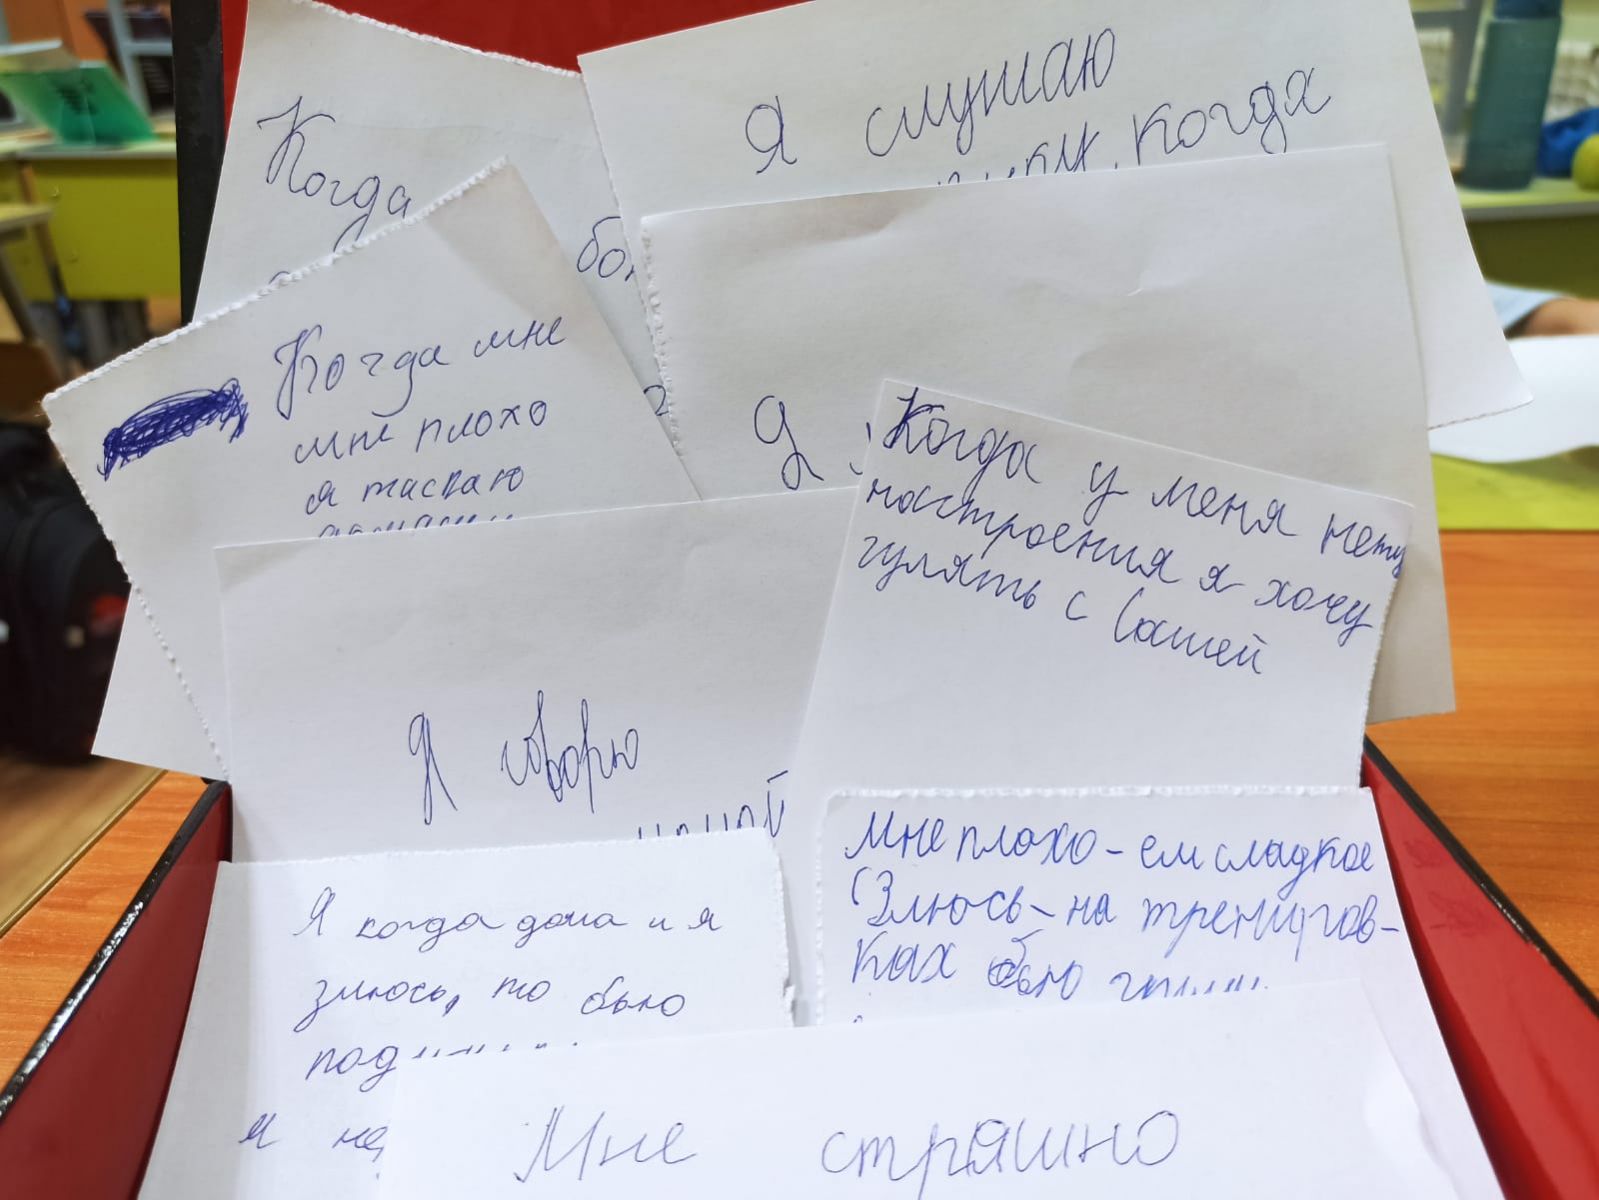 Когда
Я слушаю
когда
Когда мне
мне плохо
я тискаю
Я
Когда у меня нету
настроения я хочу
гулять с Сашей
Я говорю
Мне плохо - ем сладкое
Злюсь - на трениров-
ках бью
Я когда дома и я
злюсь, то бью
Мне страшно